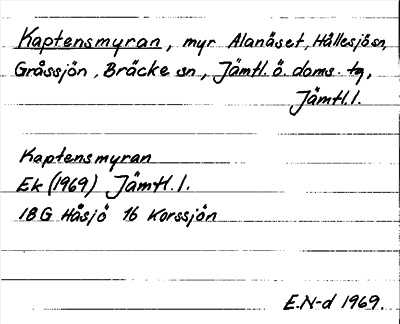 Kaptensmyran, myr Alanäset, Hällesjö sn,
Gråssjön, Bräcke sn, Jämtl. ö. doms. tg,
Jämtl. l.
Kaptensmyran
Ek (1969) Jämtl. l.
18G Håsjö 16 Korssjön
E.N-d 1969.